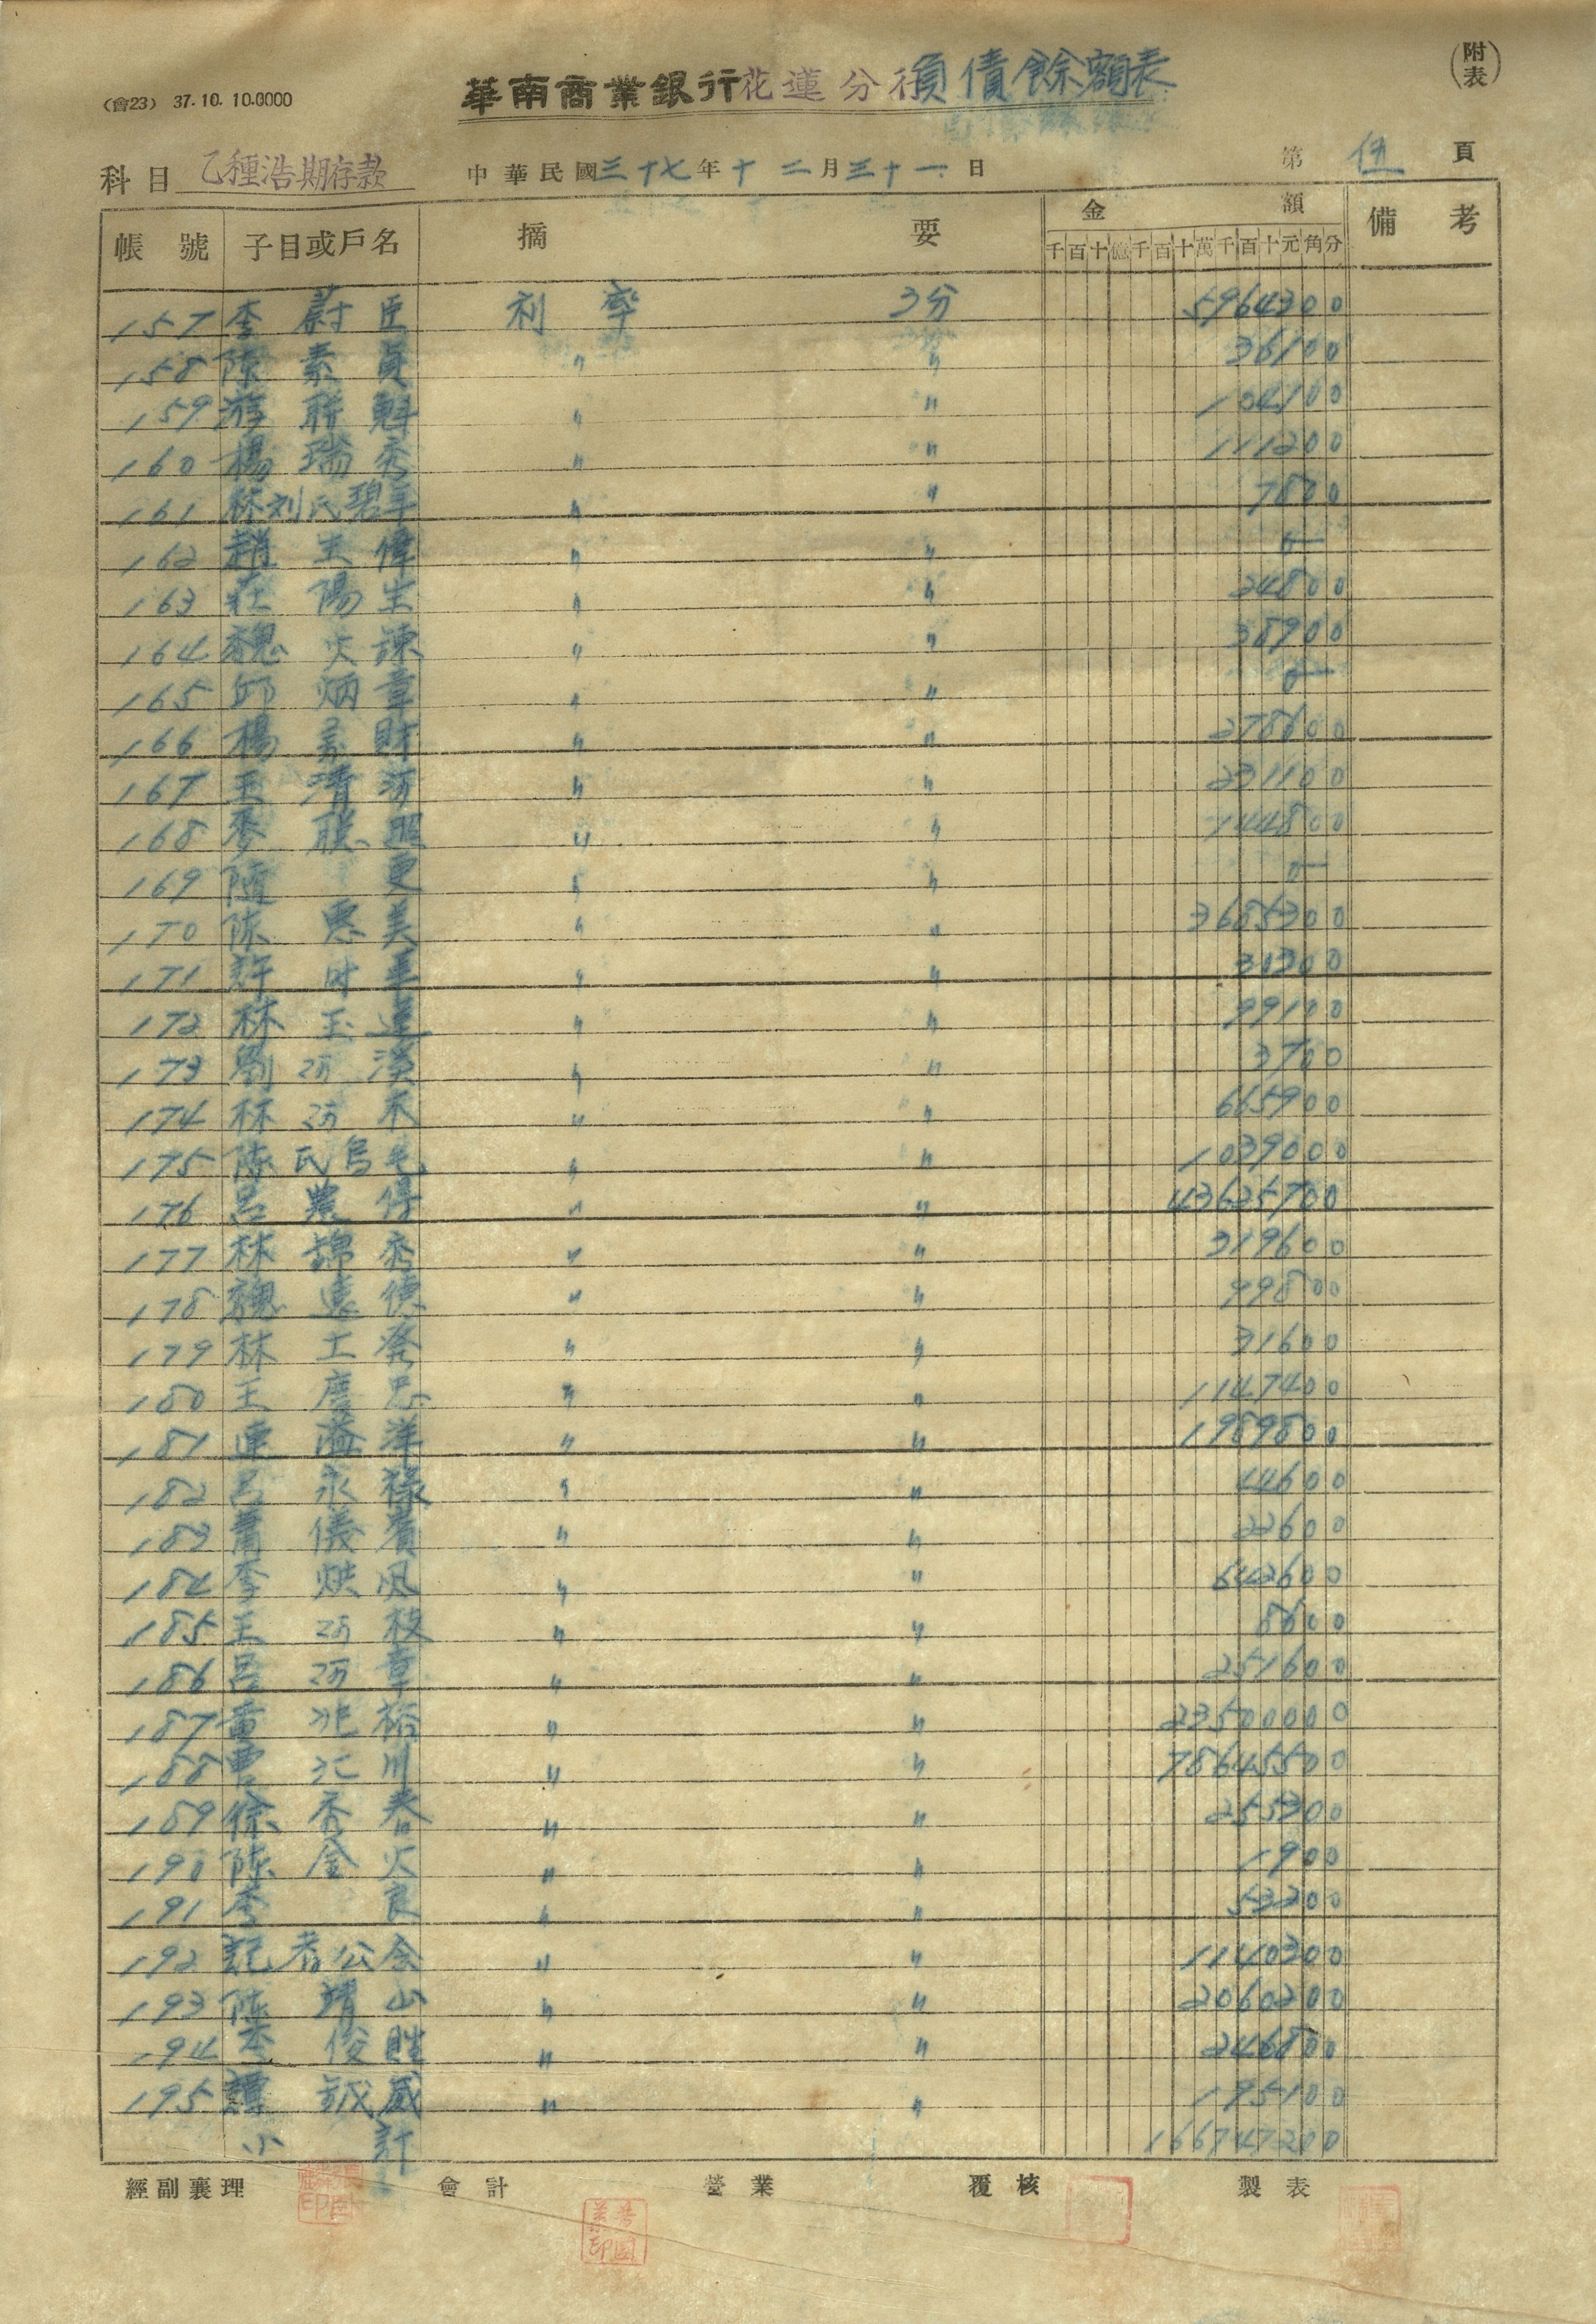 (附表)
(會23) 37.10. 10.0000
華南商業銀行花蓮分行負債餘額表
科目 乙種浩期存款 中華民國三十七年十二月三十一日 第 伍 頁
帳號 子目或戶名 摘要 金額 備考
千百十億千百十萬千百十元角分
157 李蔚臣 利率 3分 5964300
158 陳素貞 〃 〃 36100
159 游聯魁 〃 〃 104100
160 楊瑞秀 〃 〃 111200
161 林刘氏碧 〃 〃 7800
162 趙 偉 〃 〃 0
163 莊陽生 〃 〃 24800
164 魏火諫 〃 〃 38900
165 邱炳章 〃 〃 0
166 楊 財 〃 〃 278600
167 王清 〃 〃 231100
168 李聰照 〃 〃 144800
169 陳更 〃 〃 0
170 陳惠美 〃 〃 3685300
171 許 〃 〃 30300
172 林玉蓮 〃 〃 99100
173 劉阿漢 〃 〃 3700
174 林阿禾 〃 〃 665900
175 陳氏烏毛 〃 〃 1039000
176 呂 〃 〃 43625700
177 林錦秀 〃 〃 319600
178 魏遠德 〃 〃 99800
179 林土發 〃 〃 31600
180 王 忠 〃 〃 1147400
181 連溢洋 〃 〃 1989800
182 呂永祿 〃 〃 44600
183 蕭儀賓 〃 〃 22600
184 李烘風 〃 〃 642600
185 王阿枝 〃 〃 8600
186 呂阿章 〃 〃 251600
187 黃兆裕 〃 〃 23500000
188 曹汇川 〃 〃 78645500
189 徐秀春 〃 〃 255300
190 陳金火 〃 〃 1900
191 李良 〃 〃 53200
192 記者公会 〃 〃 1140300
193 陳靖山 〃 〃 2060200
194 李俊 〃 〃 246800
195 譚鉞威 〃 〃 195100
小計 166747200
經副襄理 會計 營業 覆核 製表